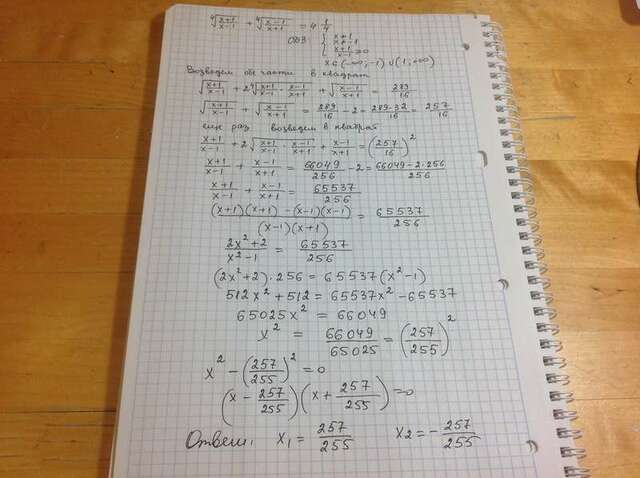 ⁴√((x+1)/(x−1)) + ⁴√((x−1)/(x+1)) = 4 1/4
ОДЗ { x≠1
x≠−1
(x+1)/(x−1) ≥0
x ∈ (−∞; −1) ∪ (1; +∞)
Возведем обе части в квадрат
√((x+1)/(x−1)) + 2 ⁴√((x+1)/(x−1) · (x−1)/(x+1)) + √((x−1)/(x+1)) = 289/16
√((x+1)/(x−1)) + √((x−1)/(x+1)) = 289/16 − 2 = (289−32)/16 = 257/16
еще раз возведем в квадрат
(x+1)/(x−1) + 2√((x+1)/(x−1) · (x−1)/(x+1)) + (x−1)/(x+1) = (257/16)²
(x+1)/(x−1) + (x−1)/(x+1) = 66049/256 − 2 = (66049−2·256)/256
(x+1)/(x−1) + (x−1)/(x+1) = 65537/256
((x+1)(x+1) −(x−1)(x−1))/((x−1)(x+1)) = 65537/256
(2x²+2)/(x²−1) = 65537/256
(2x²+2)·256 = 65537(x²−1)
512x²+512 = 65537x²−65537
65025x² = 66049
x² = 66049/65025 = (257/255)²
x² − (257/255)² =0
(x − 257/255)(x + 257/255) =0
Ответ: x₁ = 257/255 x₂ = − 257/255